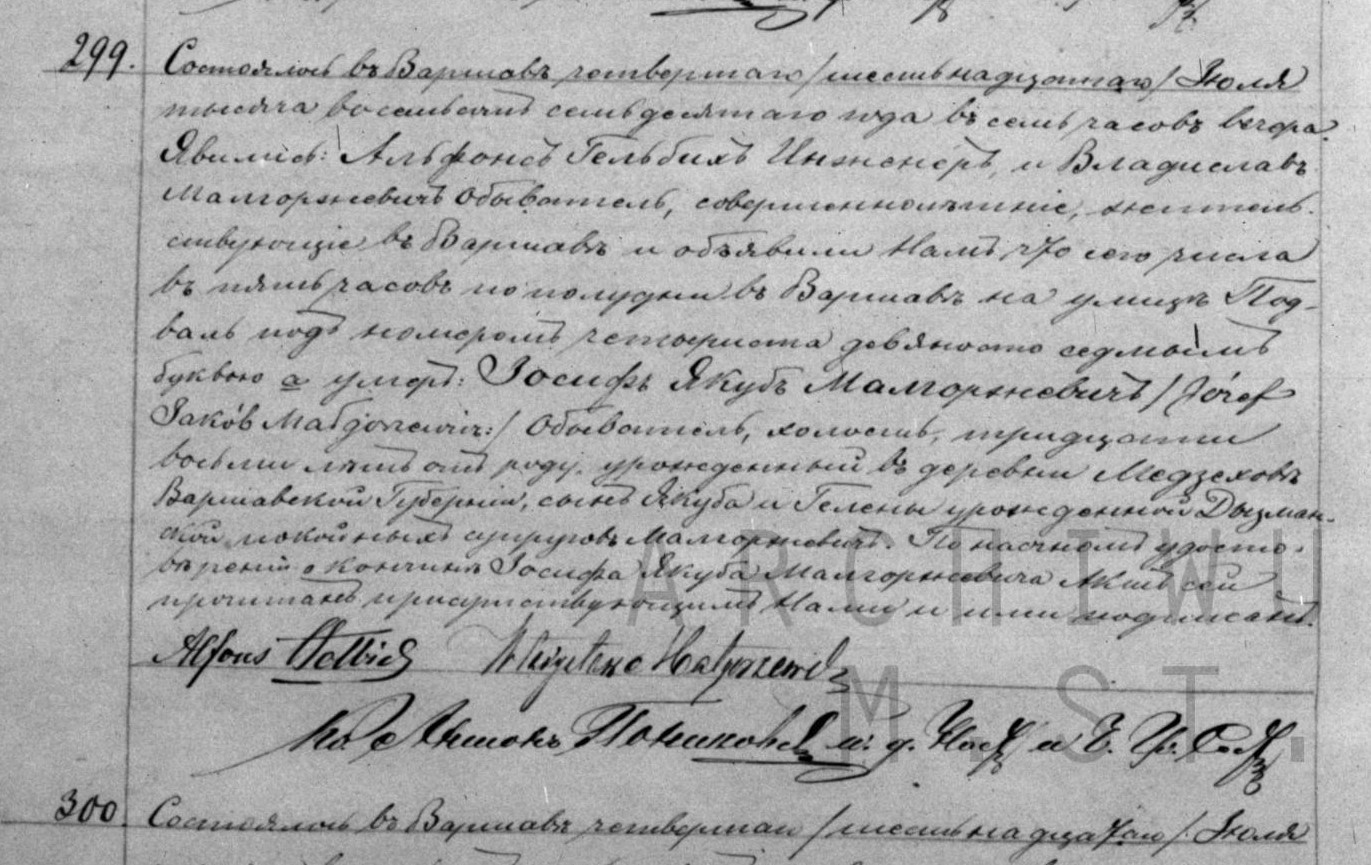 299. Состоялось въ Варшавѣ четвертаго /шестьнадцатаго/ Іюля
тысяча восемьсотъ семьдесятаго года въ семь часовъ вечера.
Явились: Альфонсъ Гельбихъ Инженеръ, и Владиславъ
Малгоржевичъ Обыватель, совершеннолѣтніе, житель-
ствующіе въ Варшавѣ и объявили Намъ что сего числа
въ пять часовъ по полудни въ Варшавѣ на улицѣ Под-
валь подъ номеромъ четыриста девяносто седмымъ
буквою a умеръ: Іосифъ Якубъ Малгоржевичъ /Józef
Jakób Małgorzewicz:/ Обыватель, холостъ, тридцати
восьми лѣтъ отъ роду, урожденный въ деревни Медзеховѣ
Варшавской Губерніи, сынъ Якуба и Гелены урожденной Дызман-
ской покойныхъ супруговъ Малгоржевичъ. По наочномъ удосто-
вѣреніи о кончинѣ Іосифа Якуба Малгоржевича Актъ сей
прочитанъ присутствующимъ Нами и ими подписанъ.
Alfons Helbich Małgorzewicz
Кс Антонъ и. д. Наст. и Ч. Гр. Сост.
300 Состоялось въ Варшавѣ четвертаго /шестьнадцатаго/ Іюля
ARCHIWUM
M. ST.